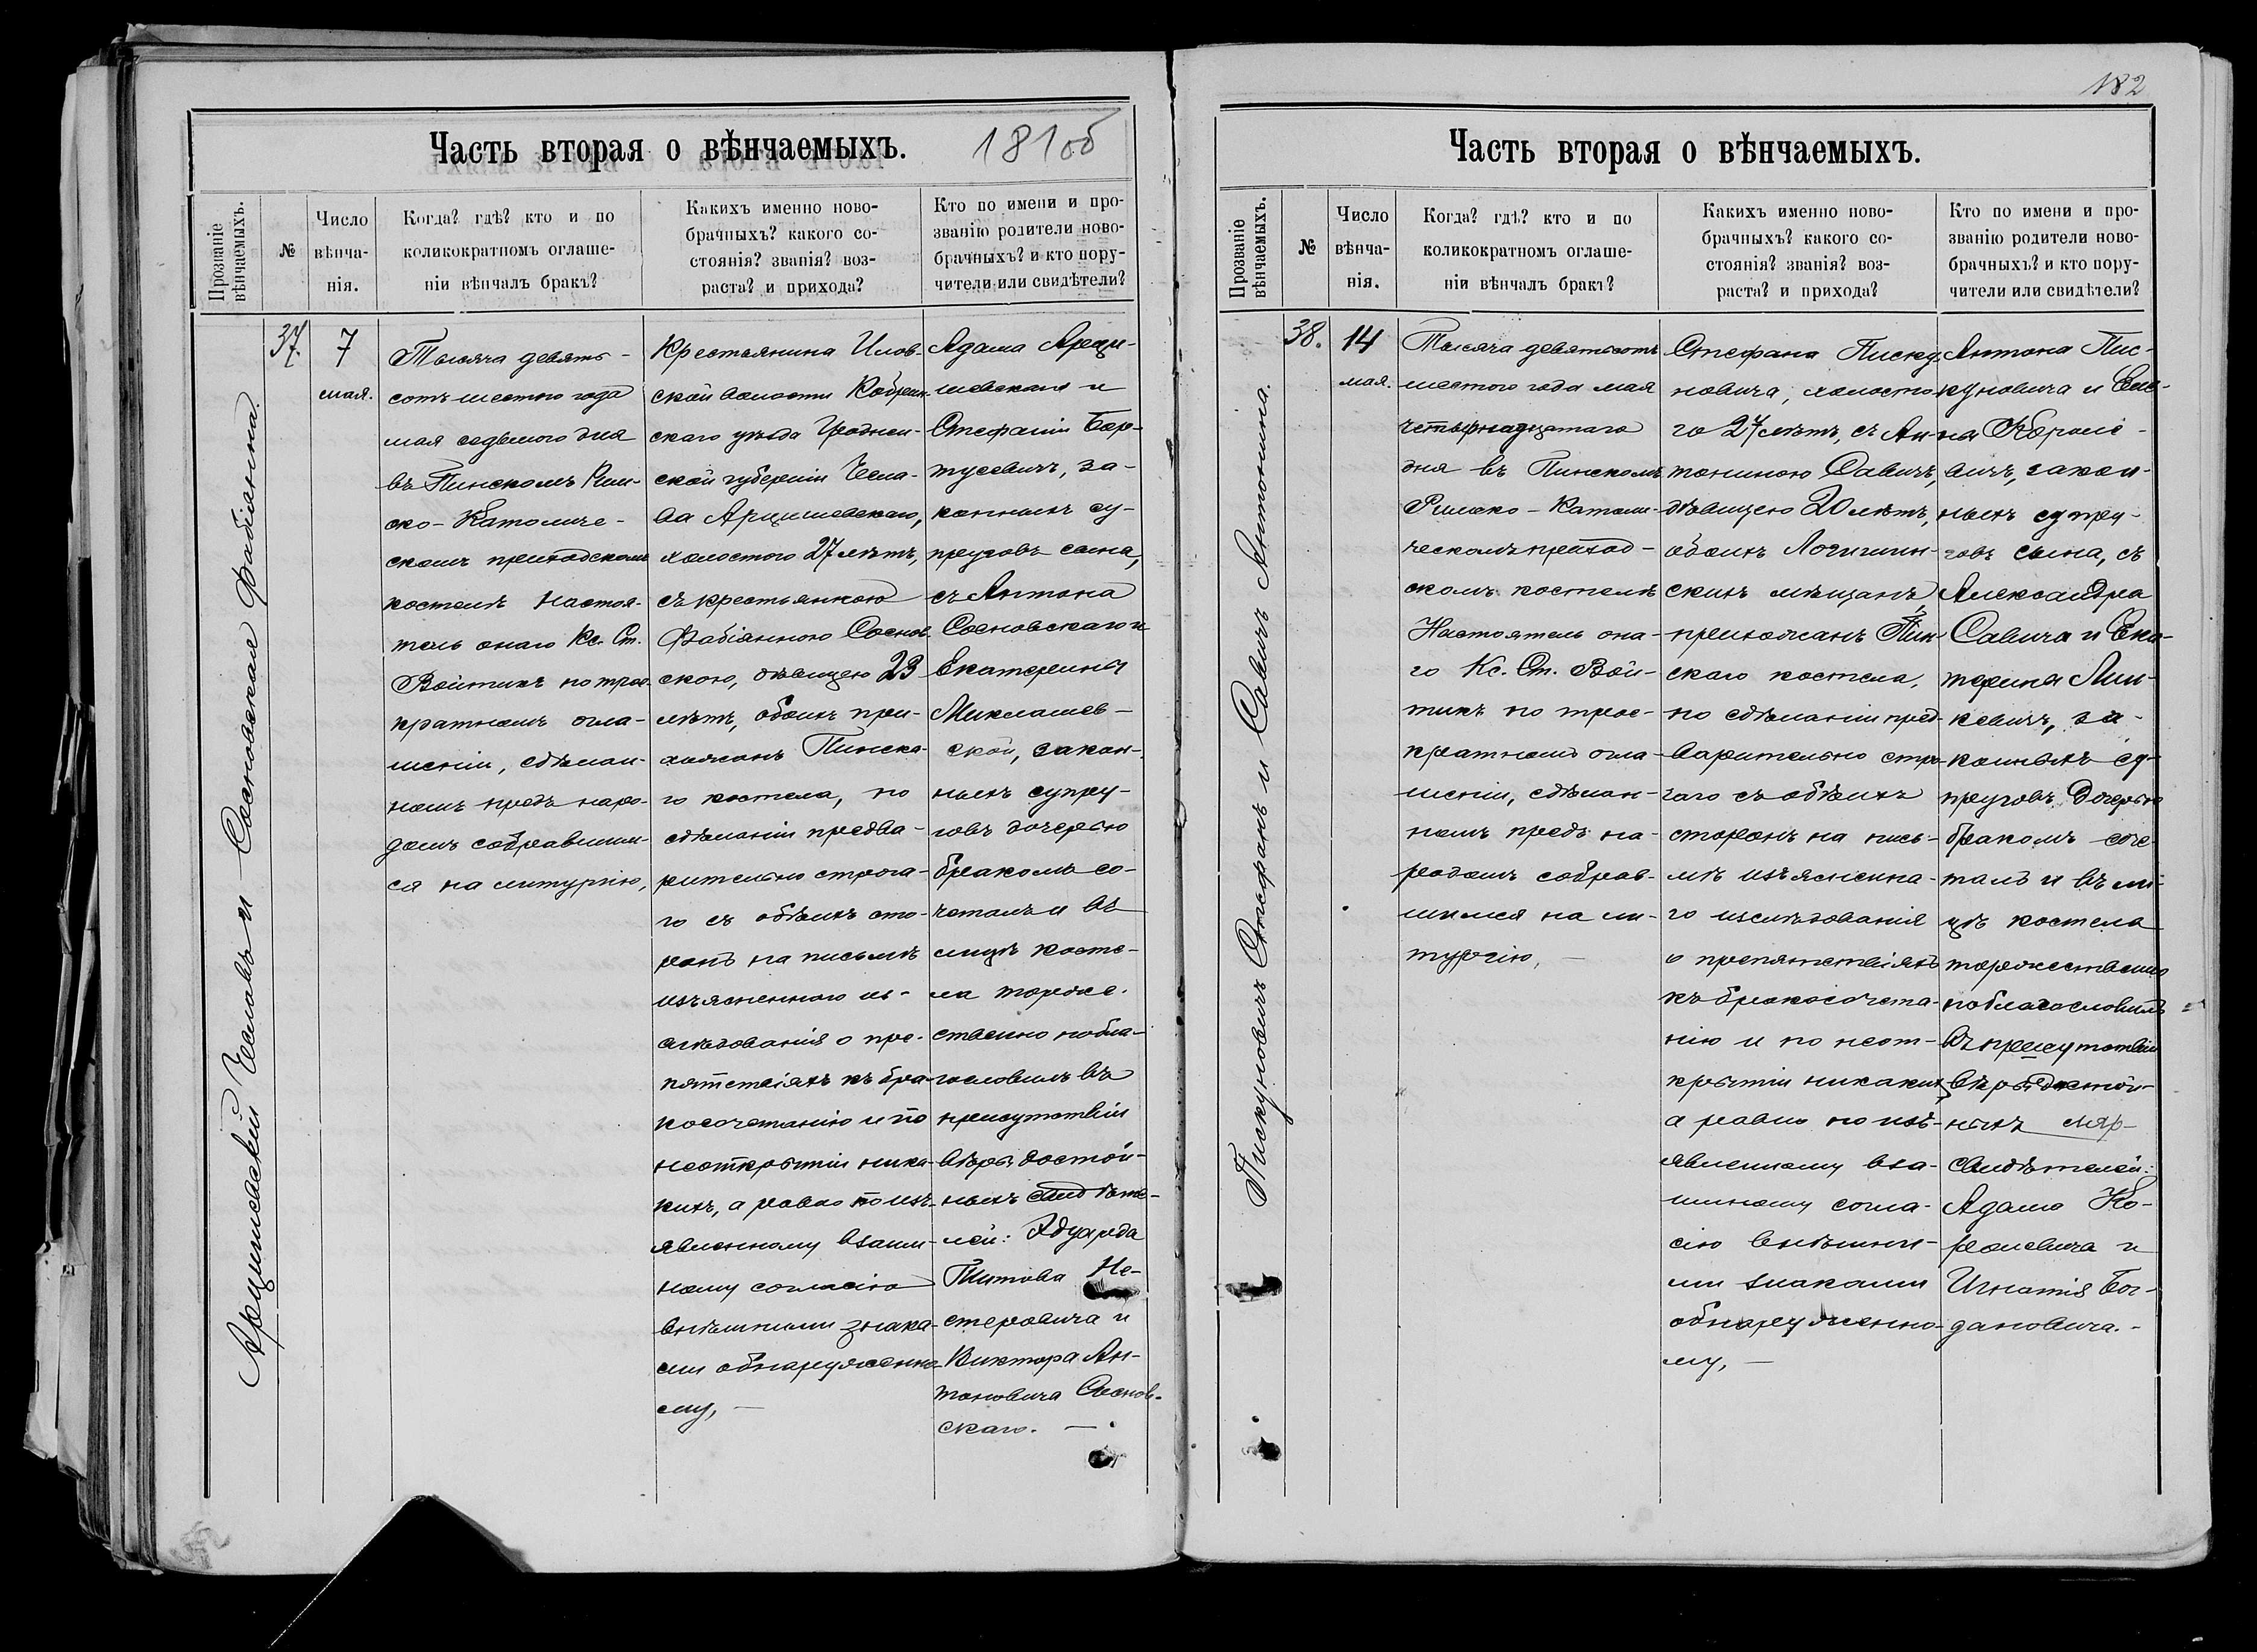 182
Часть вторая о вѣнчаемыхъ. 181об
Прозваніе вѣнчаемыхъ.
№
Число вѣнча-
нія.
Когда? гдѣ? кто и по
коликократномъ оглаше-
ніи вѣнчалъ бракъ?
Какихъ именно ново-
брачныхъ? какого со-
стоянія? званія? воз-
раста? и прихода?
Кто по имени и про-
званію родители ново-
брачныхъ? и кто пору-
чители или свидѣтели?
Арцишевскій Чеславъ и Сосновская Фабіанна.
37.
7
мая.
Тысяча девять-
сотъ шестого года
мая седьмого дня
въ Пинскомъ Рим-
ско-Католиче-
скомъ приходскомъ
костелѣ Настоя-
тель онаго Кс. Ст.
Войтикъ по трое-
кратномъ огла-
шеніи, сдѣлан-
номъ предъ наро-
домъ собравшим-
ся на литургію,
Крестьянина Илов-
ской волости Кобрин-
скаго уѣзда Гроднен-
ской губерніи Чесла-
ва Арцишевскаго,
холостого 27 лѣтъ,
съ крестьянкою
Фабіанною Соснов-
скою, дѣвицею 23
лѣтъ, обоихъ при-
хожанъ Пинска-
го костела, по
сдѣланіи предва-
рительно строга-
го съ обѣихъ сто-
ронъ на письмѣ
изъясненнаго из-
слѣдованія о пре-
пятствіяхъ къ бра-
косочетанію и по
неоткрытіи ника-
кихъ, а равно по изъ-
явленному взаим-
ному согласію
внѣшними знака-
ми обнаруженно-
му, —
Адама Арци-
шевскаго и
Стефаніи Бар-
тусевичъ, за-
конныхъ су-
пруговъ сына,
съ Антона
Сосновскаго и
Екатерины
Миклашев-
ской, закон-
ныхъ супру-
говъ дочерью
бракомъ со-
четалъ и въ
лицѣ косте-
ла торже-
ственно побла-
гословилъ въ
присутствіи
вѣры достой-
ныхъ свидѣте-
лей: Эдуарда
Титова Не-
стеровича и
Виктора Ан-
тоновича Соснов-
скаго. —
Часть вторая о вѣнчаемыхъ.
Прозваніе вѣнчаемыхъ.
№
Число
вѣнча-
нія.
Когда? гдѣ? кто и по
коликократномъ оглаше-
ніи вѣнчалъ бракъ?
Какихъ именно ново-
брачныхъ? какого со-
стоянія? званія? воз-
раста? и прихода?
Кто по имени и про-
званію родители ново-
брачныхъ? и кто пору-
чители или свидѣтели?
Пискуновичъ Стефанъ и Савичъ Антонина.
38.
14
мая.
Тысяча девятьсотъ
шестого года мая
четырнадцатаго
дня въ Пинскомъ
Римско-Католи-
ческомъ приход-
скомъ костелѣ
Настоятель она-
го Кс. Ст. Вой-
тикъ по трое-
кратномъ огла-
шеніи, сдѣлан-
номъ предъ на-
родомъ собрав-
шимся на ли-
тургію, —
Стефана Писку-
новича, холосто-
го 27 лѣтъ, съ Ан-
тониною Савичъ,
дѣвицею 20 лѣтъ,
обоихъ Логишин-
скихъ мѣщанъ,
прихожанъ Пин-
скаго костела,
по сдѣланіи пред-
варительно стро-
гаго съ обѣихъ
сторонъ на пись-
мѣ изъясненна-
го изслѣдованія
о препятствіяхъ
къ бракосочета-
нію и по неот-
крытіи никакихъ,
а равно по изъ-
явленному вза-
имному согла-
сію внѣшни-
ми знаками
обнаруженно-
му, —
Антона Пис-
куновича и Еле-
ны Короле-
вичъ, закон-
ныхъ супру-
говъ сына, съ
Александра
Савича и Ека-
терины Лин-
кевичъ, за-
конныхъ су-
пруговъ дочерью
бракомъ соче-
талъ и въ ли-
цѣ костела
торжественно
поблагословилъ
въ присутствіи
вѣры достой-
ныхъ
свидѣтелей:
Адама Ко-
ролевича и
Игнатія Бог-
дановича. —